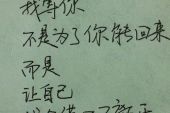 我等你
不是为了你能回来
而是
让自己